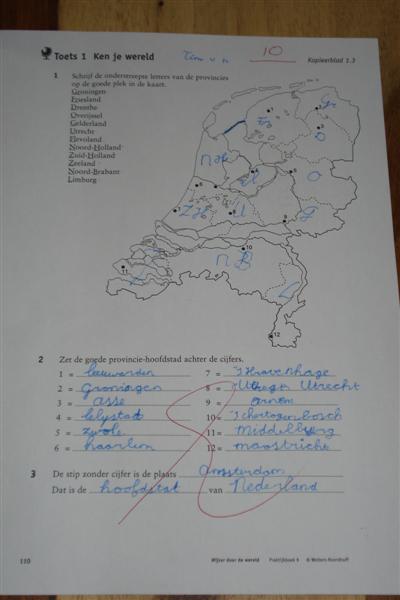 Toets 1 Ken je wereld
Tim v n
10
Kopieerblad 1.3
1 Schrijf de onderstreepte letters van de provincies
op de goede plek in de kaart.
Groningen
Friesland
Drenthe
Overijssel
Gelderland
Utrecht
Flevoland
Noord-Holland
Zuid-Holland
Zeeland
Noord-Brabant
Limburg
Gr
Fr
D
NH
Fl
O
ZH
U
G
NB
Z
L
2 Zet de goede provincie-hoofdstad achter de cijfers.
1 = leeuwarden
2 = groningen
3 = asse
4 = lelystad
5 = zwole
6 = haarlem
7 = 'sHravenhage
8 = Utrecht
9 = arnem
10 = 'schertogenbosch
11 = middelberg
12 = maastricht
3 De stip zonder cijfer is de plaats Amsterdam
Dat is de hoofdstat van Nederland
110
Wijzer door de wereld Praktijkboek 6 © Wolters-Noordhoff